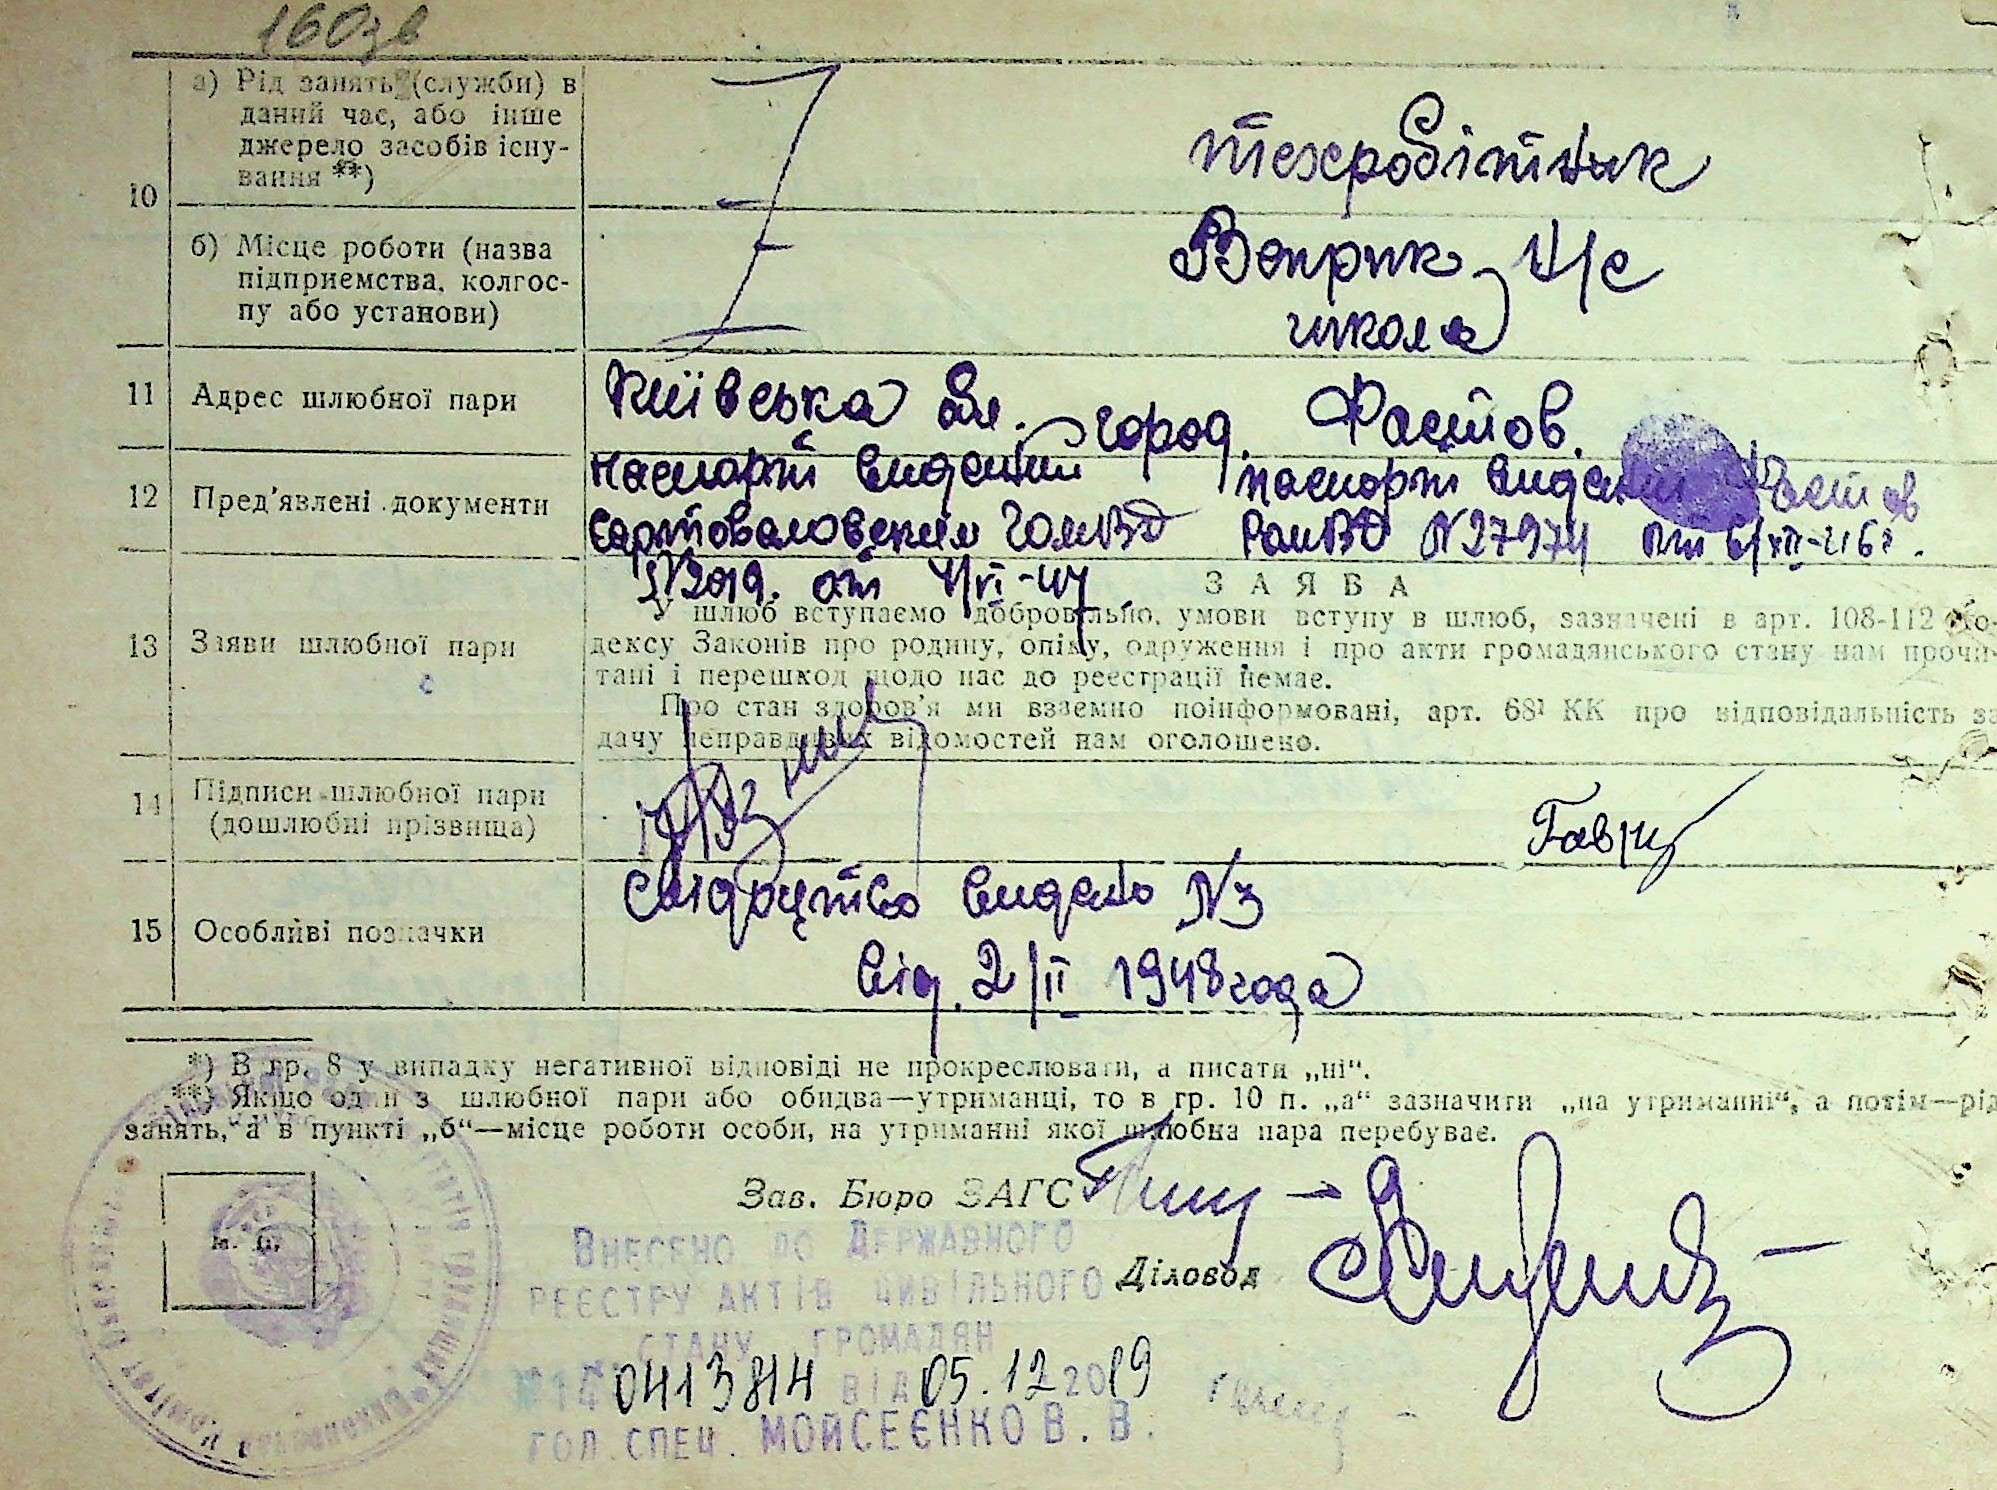 160зв
10
а) Рід занять (служби) в
даний час, або інше
джерело засобів існу-
вання **)
техробітник
б) Місце роботи (назва
підприємства, колгос-
пу або установи)
Веприк н/с
школа
11 Адрес шлюбної пари
Київська обл. город. Фастов.
12 Пред'явлені документи
паспорт виданий
паспорт виданий Фастов
РайВД N27974
N2019. от 4/VI-47
13 Заяви шлюбної пари
ЗАЯВА
У шлюб вступаємо добровільно, умови вступу в шлюб, зазначені в арт. 108-112 Ко-
дексу Законів про родину, опіку, одруження і про акти громадянського стану нам прочи-
тані і перешкод щодо нас до реєстрації немає.
Про стан здоров'я ми взаємно поінформовані, арт. 68¹ КК про відповідальність за
дачу неправдивих відомостей нам оголошено.
14 Підписи шлюбної пари
(дошлюбні прізвища)
Гавриц
15 Особливі позначки
Свідоцтво видано N3
від. 2/II 1948 года
*) В гр. 8 у випадку негативної відповіді не прокреслювати, а писати „ні“.
**) Якщо один з шлюбної пари або обидва—утриманці, то в гр. 10 п. „а“ зазначити „на утриманні“, а потім—рід
занять, а в пункті „б“—місце роботи особи, на утриманні якої шлюбна пара перебуває.
М. П.
Зав. Бюро ЗАГС
Діловод
ВНЕСЕНО ДО ДЕРЖАВНОГО
РЕЄСТРУ АКТІВ ЦИВІЛЬНОГО
СТАНУ ГРОМАДЯН
ВІД 05.12 2019
ГОЛ. СПЕЦ. МОЙСЕЄНКО В. В.